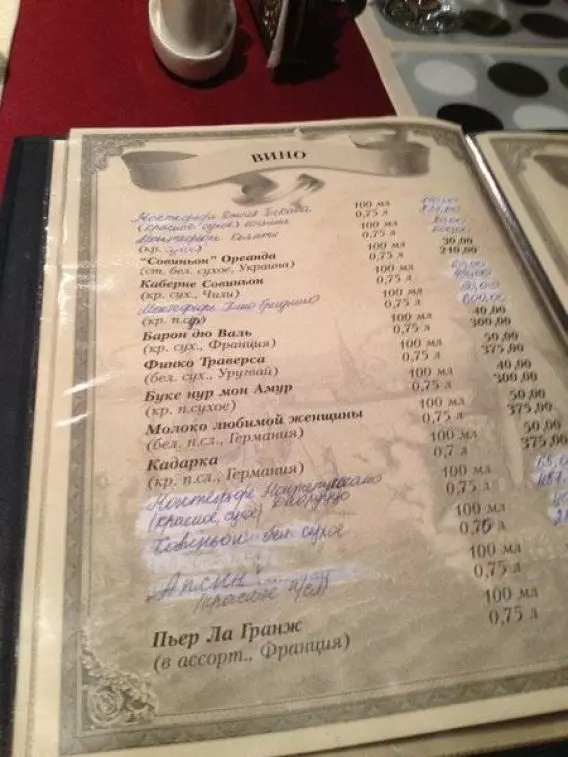 ВИНО
100 мл
(красное сухое)
0,75 л
100 мл
(кр. сухое) 0,75 л
"Совиньон" Ореанда 100 мл 30,00
(ст. бел. сухое, Украина) 0,75 л 240,00
Каберне Совиньон 100 мл
(кр. сух., Чили) 0,75 л
100 мл
(кр. п.ср) 0,75 л
Барон дю Валь 100 мл 40,00
(кр. сух., Франция) 0,75 л 300,00
Финко Траверса 100 мл 50,00
(бел. сух., Уругвай) 0,75 л 375,00
Буке нур мон Амур 100 мл 40,00
(кр. п.сухое) 0,75 л 300,00
Молоко любимой женщины 100 мл 50,00
(бел. п.сл., Германия) 0,75 л 375,00
Кадарка 100 мл 50,00
(кр. п.сл., Германия) 0,7 л 375,00
100 мл
(красное, сухое) 0,75 л
Совиньон бел. сухое 100 мл
0,75 л
100 мл
(красное п/сл) 0,75 л
Пьер Ла Гранж 100 мл
(в ассорт., Франция) 0,75 л